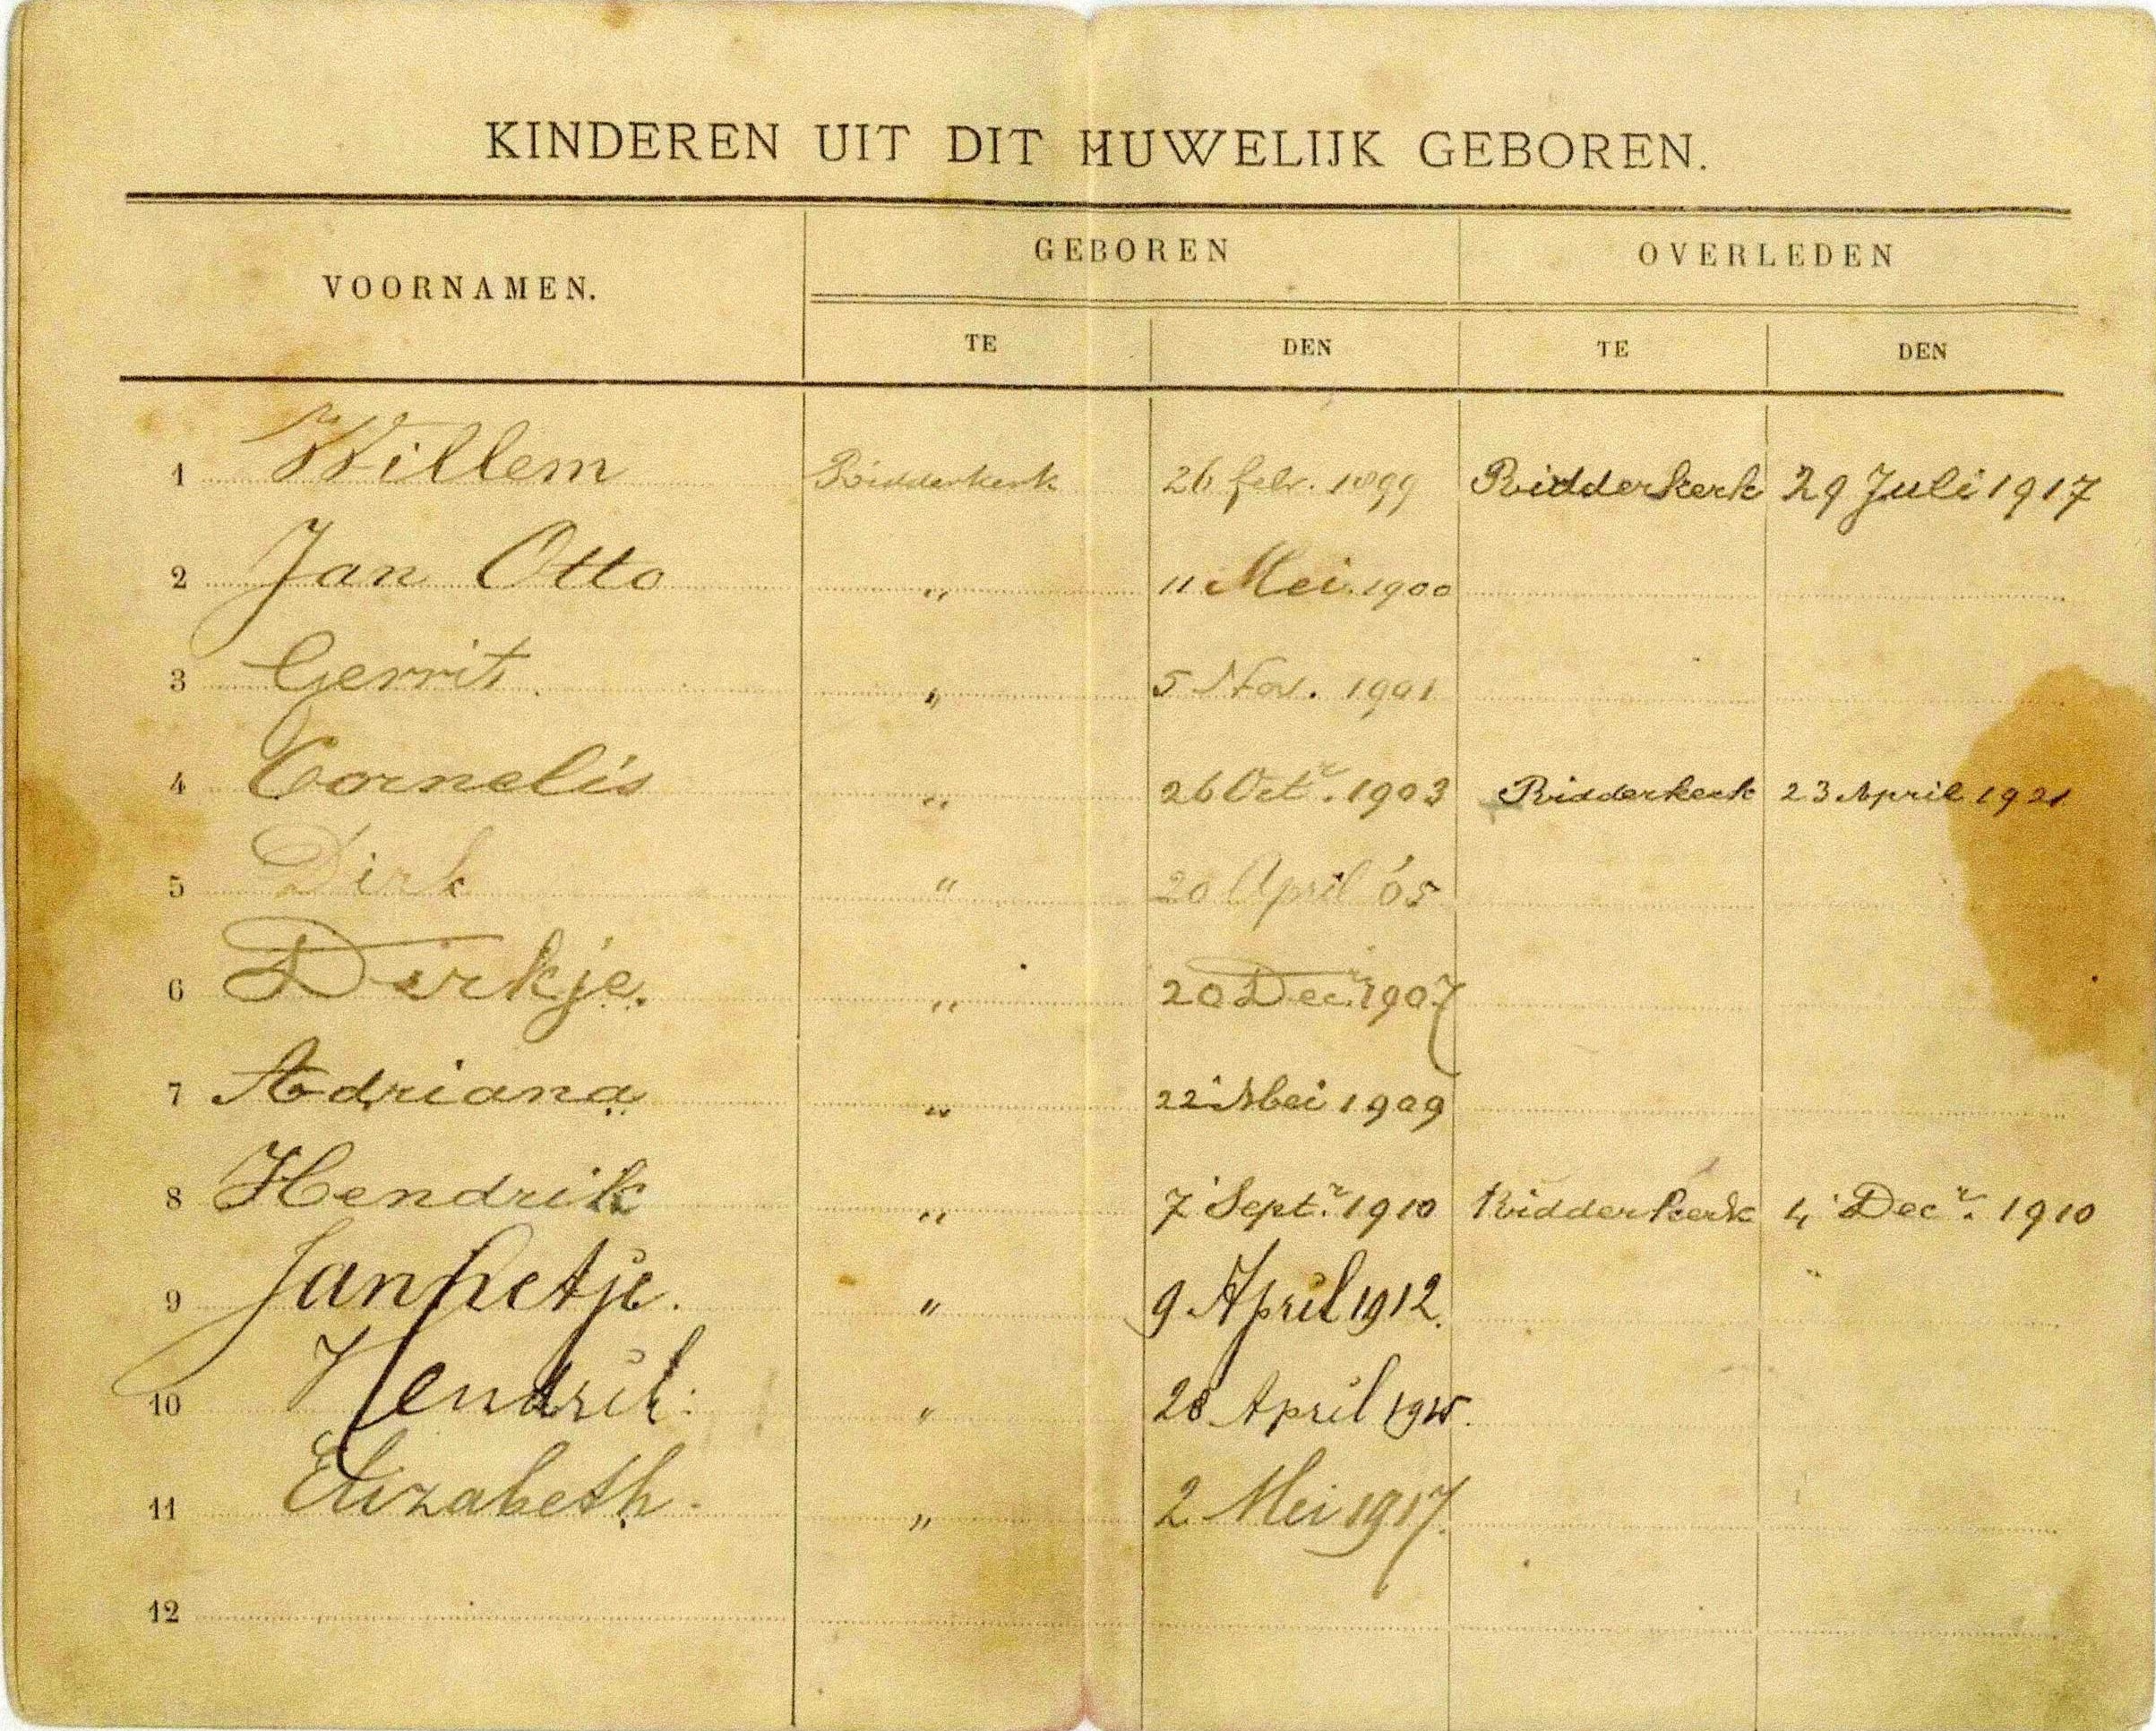 KINDEREN UIT DIT HUWELIJK GEBOREN.
VOORNAMEN. GEBOREN OVERLEDEN
TE DEN TE DEN
1 Willem Ridderkerk 26 febr. 1899 Ridderkerk 29 Juli 1917
2 Jan Otto " 11 Mei 1900
3 Gerrit. " 5 Nov. 1901
4 Cornelis " 26 Octr. 1903 Ridderkerk 23 April 1921
5 Dirk " 20 April '05
6 Dirkje. " 20 Decr 1907
7 Adriana " 22 Mei 1909
8 Hendrik " 7 Septr. 1910 Ridderkerk 4 Decr. 1910
9 Jannetje. " 9 April 1912.
10 Hendrik. " 28 April 1915.
11 Elizabeth. " 2 Mei 1917.
12